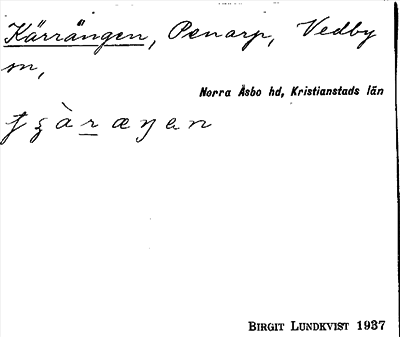 Kärrängen, Penarp, Vedby
sn,
Norra Åsbo hd, Kristianstads län
BIRGIT LUNDKVIST 1937